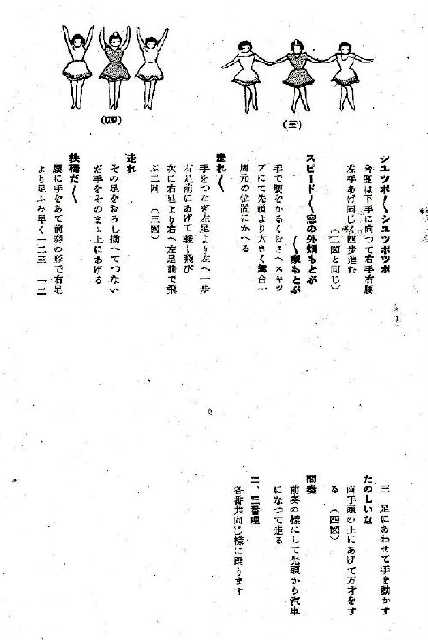 シユツポ〱シユツポツポ
今度は下手に向つて右手前腰
左手あげ同じく四歩進む
（二図と同じ）
スピード〱窓の外
〱畑もとぶ
〱家もとぶ
手で腰をかるくむすへスキツ
プにて先頭より大きく舞台一
周元の位置にかへる
走れ〱
手をつなぎ左足より左へ一歩
右足前にあげて軽く飛び
次に右足より右へ左足前で飛
ぶ二回　（三図）
走れ
その足をおろし揃へてつない
だ手をそのまゝ上にあげる
鉄橋だ〱
腰に手をあて前奏の形で右足
より足ふみ早く一二三　一二
（三）
（四）
三　足にあわせて手を動かす
たのしいな
両手頭の上にあげて万才をす
る　（四図）
間奏
前奏の様にして先頭から汽車
になつて走る
二、三番理
各番共同じ様に踊ります